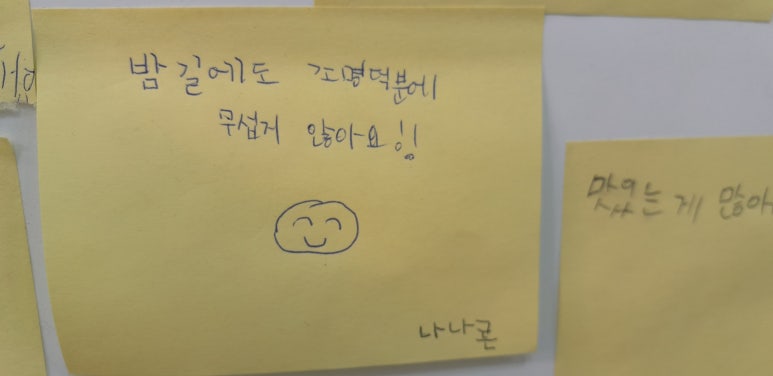 밤 길에도 조명덕분에
무섭게 않아요!!
나나콘
맛있는 게 많아